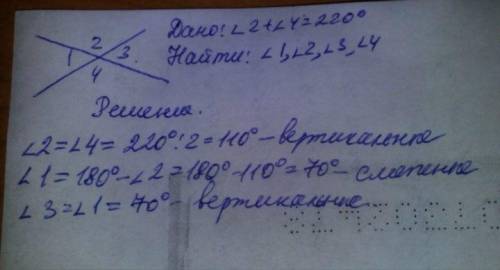 1 2 3 4
Дано: ∠2+∠4=220°
Найти: ∠1,∠2,∠3,∠4
Решение.
∠2=∠4=220°:2=110°-вертикальные
∠1=180°-∠2=180°-110°=70°-смежные
∠3=∠1=70°-вертикальные